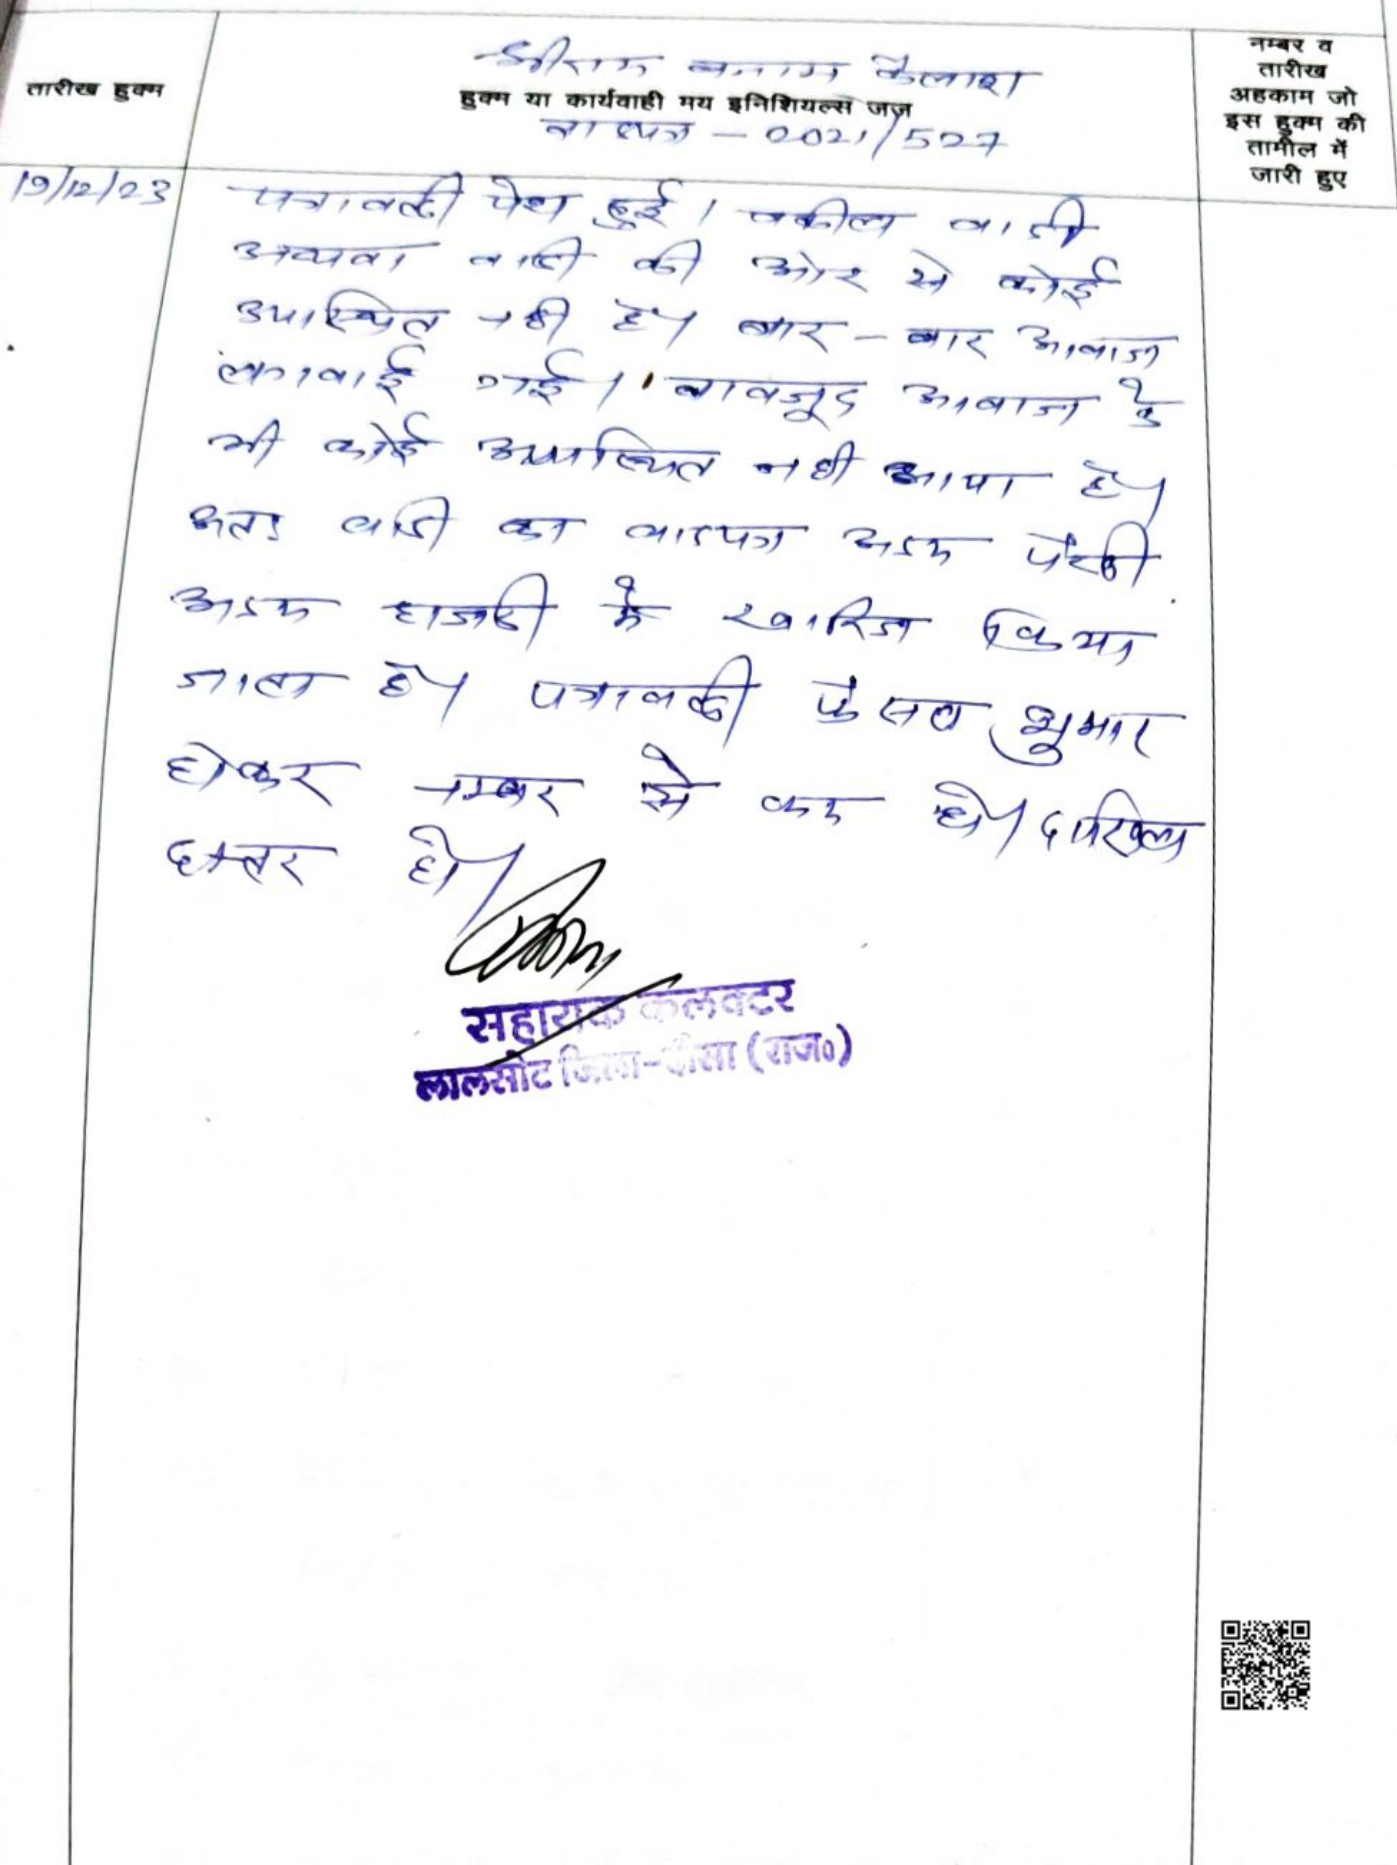 श्रीराम बनाम कैलाश
तारीख हुक्म
हुक्म या कार्यवाही मय इनिशियल्स जज
वादपत्र - 2021/527
नम्बर व
तारीख
अहकाम जो
इस हुक्म की
तामील में
जारी हुए
19/12/23
पत्रावली पेश हुई। वकील वादी
अथवा वादी की ओर से कोई
उपस्थित नही है। बार - बार आवाज
लगवाई गई। बावजूद आवाज के
भी कोई उपस्थित नही आया है।
अतः वादी का वादपत्र अदम पैरवी
अदम हाजरी मे खारिज किया
जाता है। पत्रावली फैसल शुमार
होकर नम्बर से कम हो। दाखिल
दफ्तर हो।
सहायक कलक्टर
लालसोट जिला-दौसा (राज०)